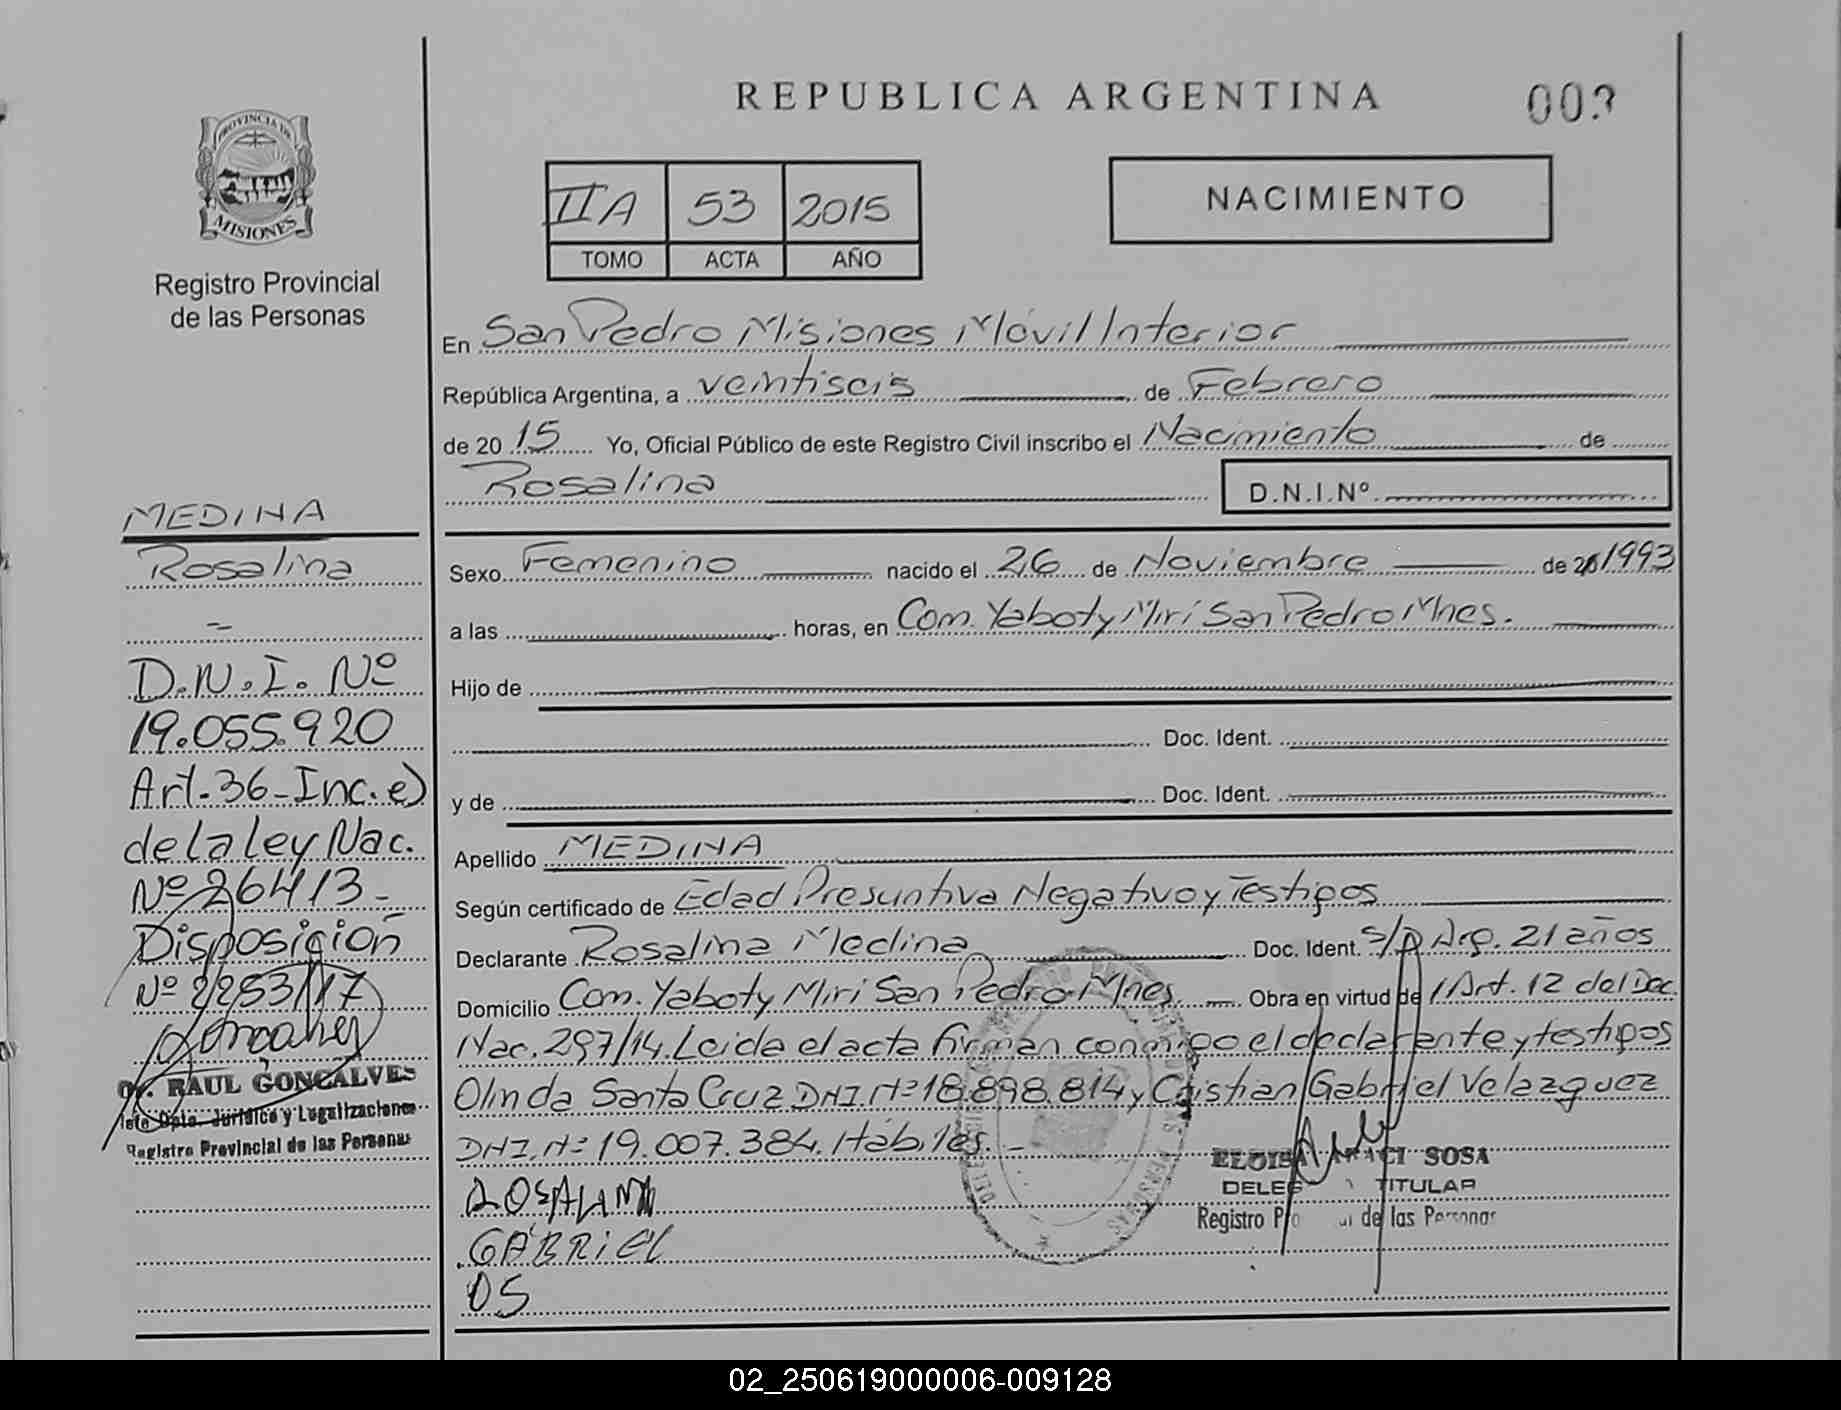 REPUBLICA ARGENTINA
003
PROVINCIA DE
MISIONES
Registro Provincial
de las Personas
IIA 53 2015
TOMO ACTA AÑO
NACIMIENTO
En San Pedro Misiones Móvil Interior
República Argentina, a veintiseis de Febrero
de 2015 Yo, Oficial Público de este Registro Civil inscribo el Nacimiento de
Rosalina D.N.I.Nº
Sexo Femenino nacido el 26 de Noviembre de 1993
a las horas, en Com. Yaboty Miri San Pedro Mnes.
Hijo de
Doc. Ident.
y de Doc. Ident.
Apellido MEDINA
Según certificado de Edad Presuntiva Negativo y Testigos
Declarante Rosalina Medina Doc. Ident. S/D Arg. 21 años
Domicilio Com. Yaboty Miri San Pedro Mnes. Obra en virtud de Art. 12 del Dec.
Nac. 297/14. Leida el acta firman conmigo el declarante y testigos
Olinda Santa Cruz DNI. Nº 18.898.814 y Cristian Gabriel Velazquez
DNI. Nº 19.007.384. Hábiles. -
ROSALINA
GABRIEL
OS
ELOISA ARACI SOSA
DELEG TITULAR
Registro Pro al de las Personas
MEDINA
Rosalina
-
D.N.I. Nº
19.055.920
Art-36-Inc.e)
de la ley Nac.
Nº 26413-
Disposición
Nº 2253/17
Dr. RAUL GONCALVES
Jefe Dpto. Jurídico y Legalizaciones
Registro Provincial de las Personas
02_250619000006-009128